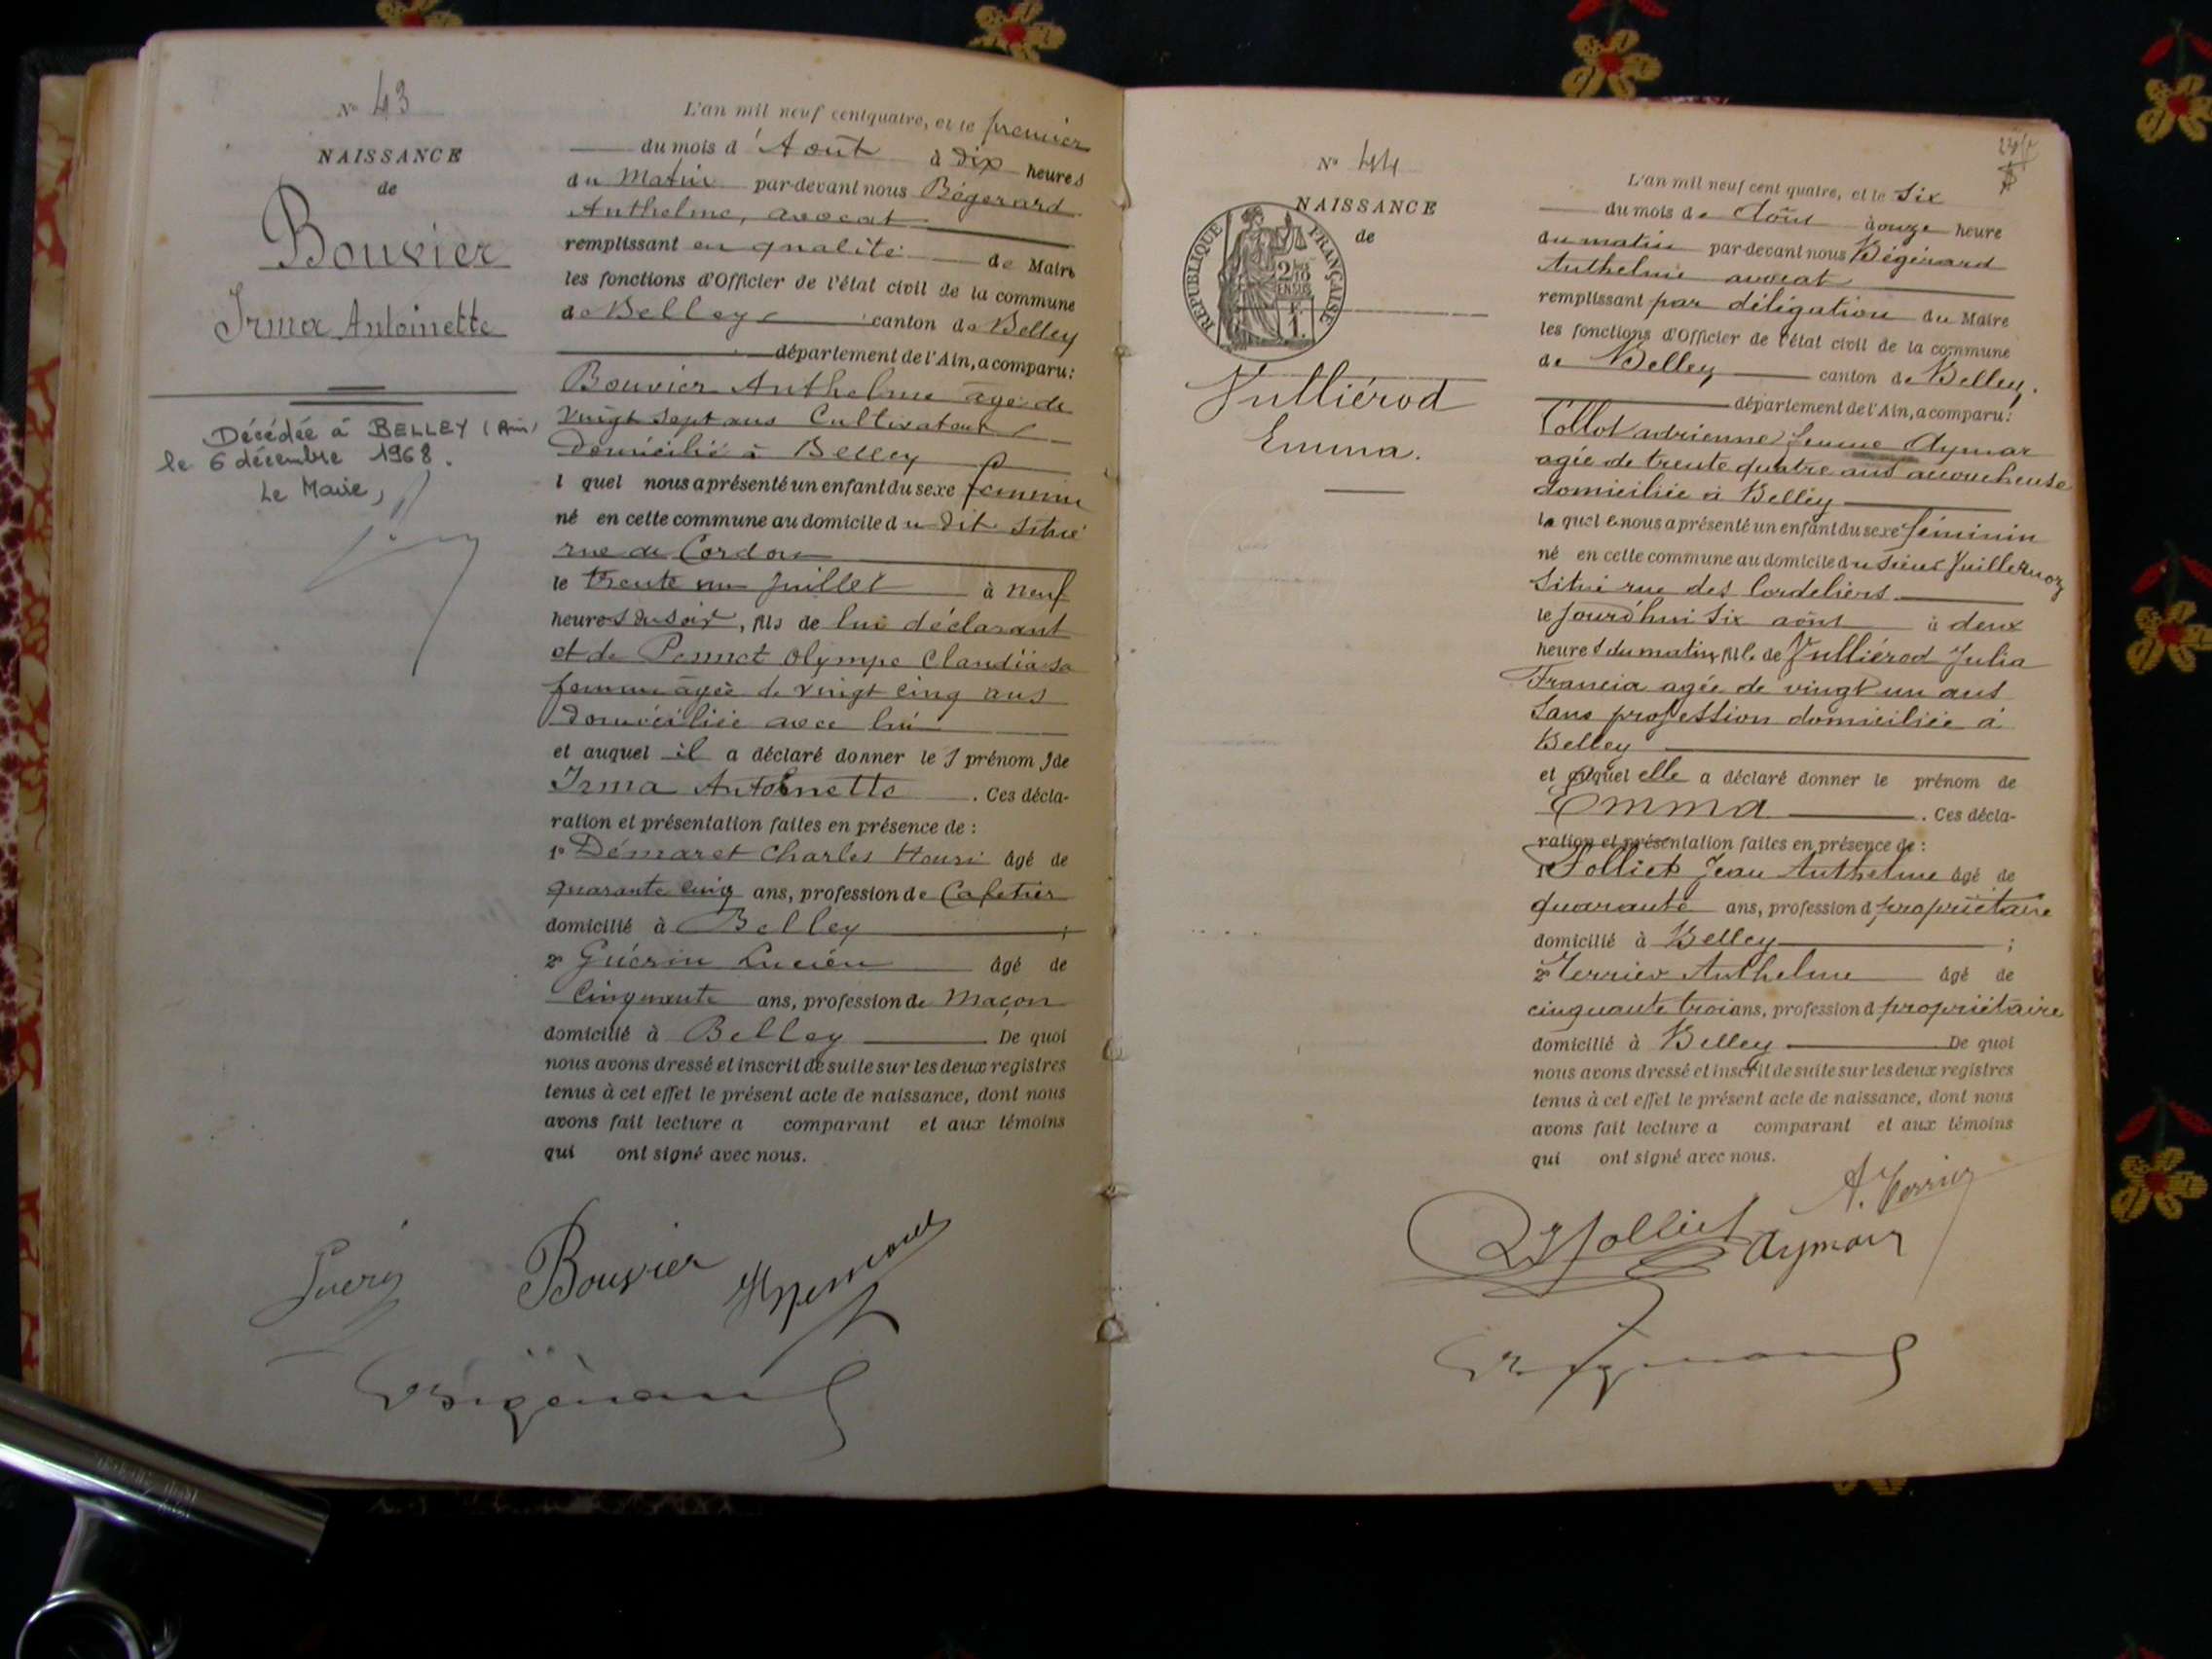 N° 43
NAISSANCE
de
Bouvier
Irma Antoinette
Décédée à BELLEY (Ain)
le 6 décembre 1968.
Le Maire,
L'an mil neuf cent quatre, et le premier
du mois d'Août à dix heures
du Matin par-devant nous Bégerard
Anthelme, avocat
remplissant en qualité de Maire
les fonctions d'Officier de l'état civil de la commune
de Belley canton de Belley
département de l'Ain, a comparu:
Bouvier Anthelme âgé de
vingt sept ans Cultivateur
domicilié à Belley
l quel nous a présenté un enfant du sexe féminin
né en cette commune au domicile du dit situé
rue de Cordon
le trente un Juillet à neuf
heures du soir, fils de lui déclarant
et de Olympe Claudia sa
femme âgée de vingt cinq ans
domiciliée avec lui
et auquel il a déclaré donner les prénoms de
Irma Antoinette. Ces décla-
ration et présentation faites en présence de :
1° Démaret Charles Henri âgé de
quarante cinq ans, profession de Cafetier
domicilié à Belley ;
2° Guérin Lucien âgé de
Cinquante ans, profession de Maçon
domicilié à Belley De quoi
nous avons dressé et inscrit de suite sur les deux registres
tenus à cet effet le présent acte de naissance, dont nous
avons fait lecture a comparant et aux témoins
qui ont signé avec nous.
Bouvier
N° 44
NAISSANCE
de
REPUBLIQUE FRANÇAISE
2/10 EN SUS
F.
1.
Vulliérod
Emma.
L'an mil neuf cent quatre, et le six
du mois de Août à onze heure
du matin par-devant nous Bégérard
Anthelme avocat
remplissant par déligation du Maire
les fonctions d'Officier de l'état civil de la commune
de Belley canton de Belley.
département de l'Ain, a comparu:
Collot adrienne femme Aymar
agée de trente quatre ans accoucheuse
domiciliée à Belley
la quelle nous a présenté un enfant du sexe féminin
né en cette commune au domicile du sieur Vuillermoz
situé rue des Cordeliers
le jourd'hui six août à deux
heures du matin, fille de Vulliérod Julia
Francia agée de vingt un ans
sans profession domiciliée à
Belley
et auquel elle a déclaré donner le prénom de
Emma. Ces décla-
ration et présentation faites en présence de :
1° Folliet Jean Anthelme âgé de
quarante ans, profession d propriétaire
domicilié à Belley ;
2° Terrier Anthelme âgé de
cinquante trois ans, profession d propriétaire
domicilié à Belley De quoi
nous avons dressé et inscrit de suite sur les deux registres
tenus à cet effet le présent acte de naissance, dont nous
avons fait lecture a comparant et aux témoins
qui ont signé avec nous.
A. Terrier
Folliet Aymar